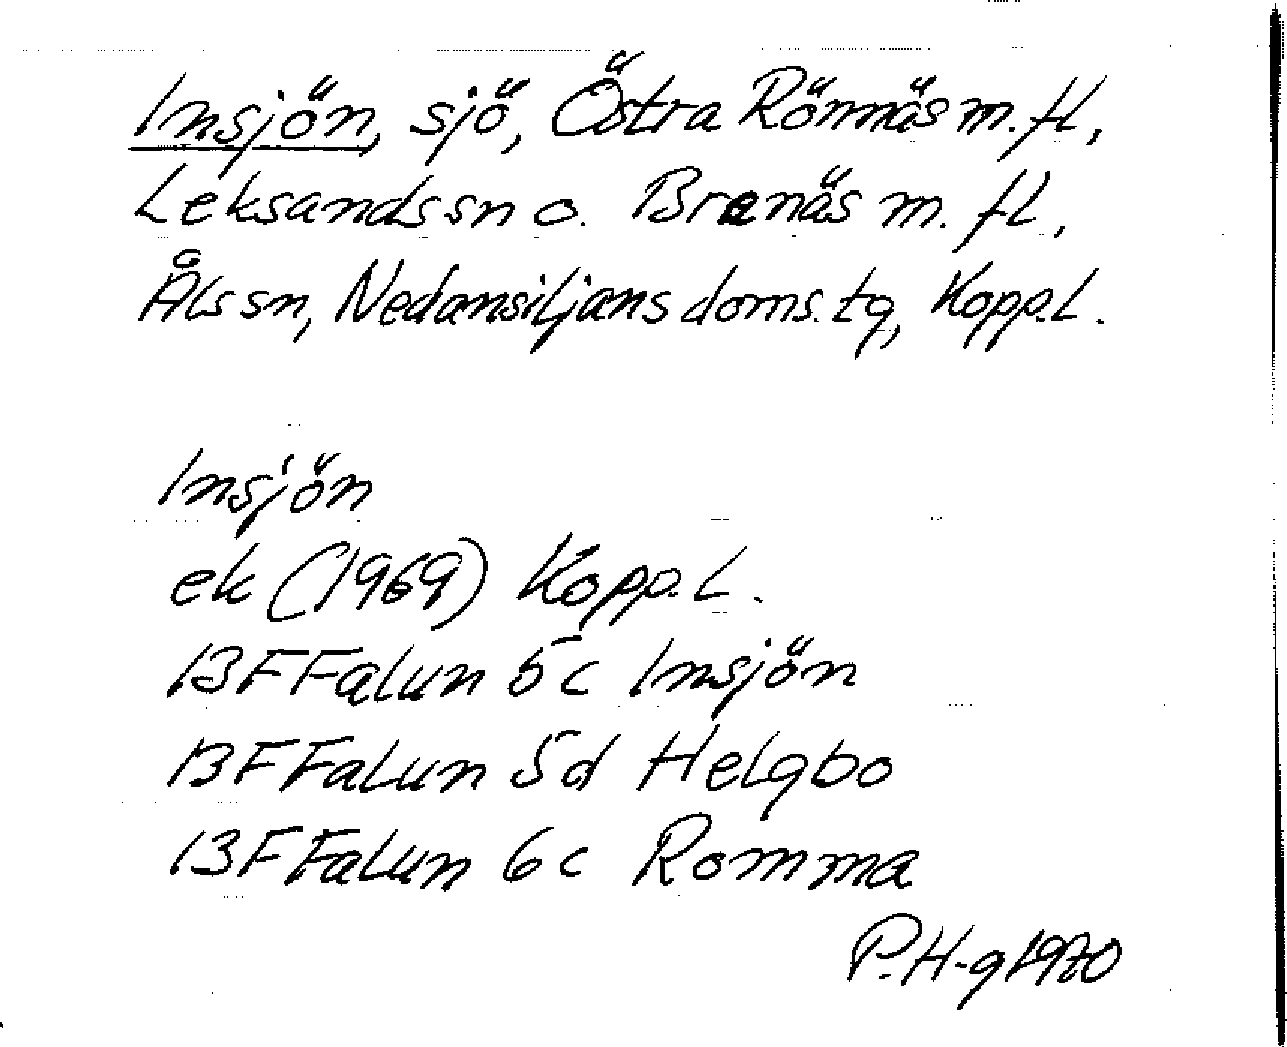 Insjön, sjö, Östra Rönnäs m.fl.,
Leksands sn o. Brenäs m.fl.,
Åls sn, Nedansiljans doms.tg, Kopp.L.
Insjön
ek (1969) Kopp.L.
13F Falun 5c Insjön
13F Falun 5d Helgbo
13F Falun 6c Romma
P.H-g 1970